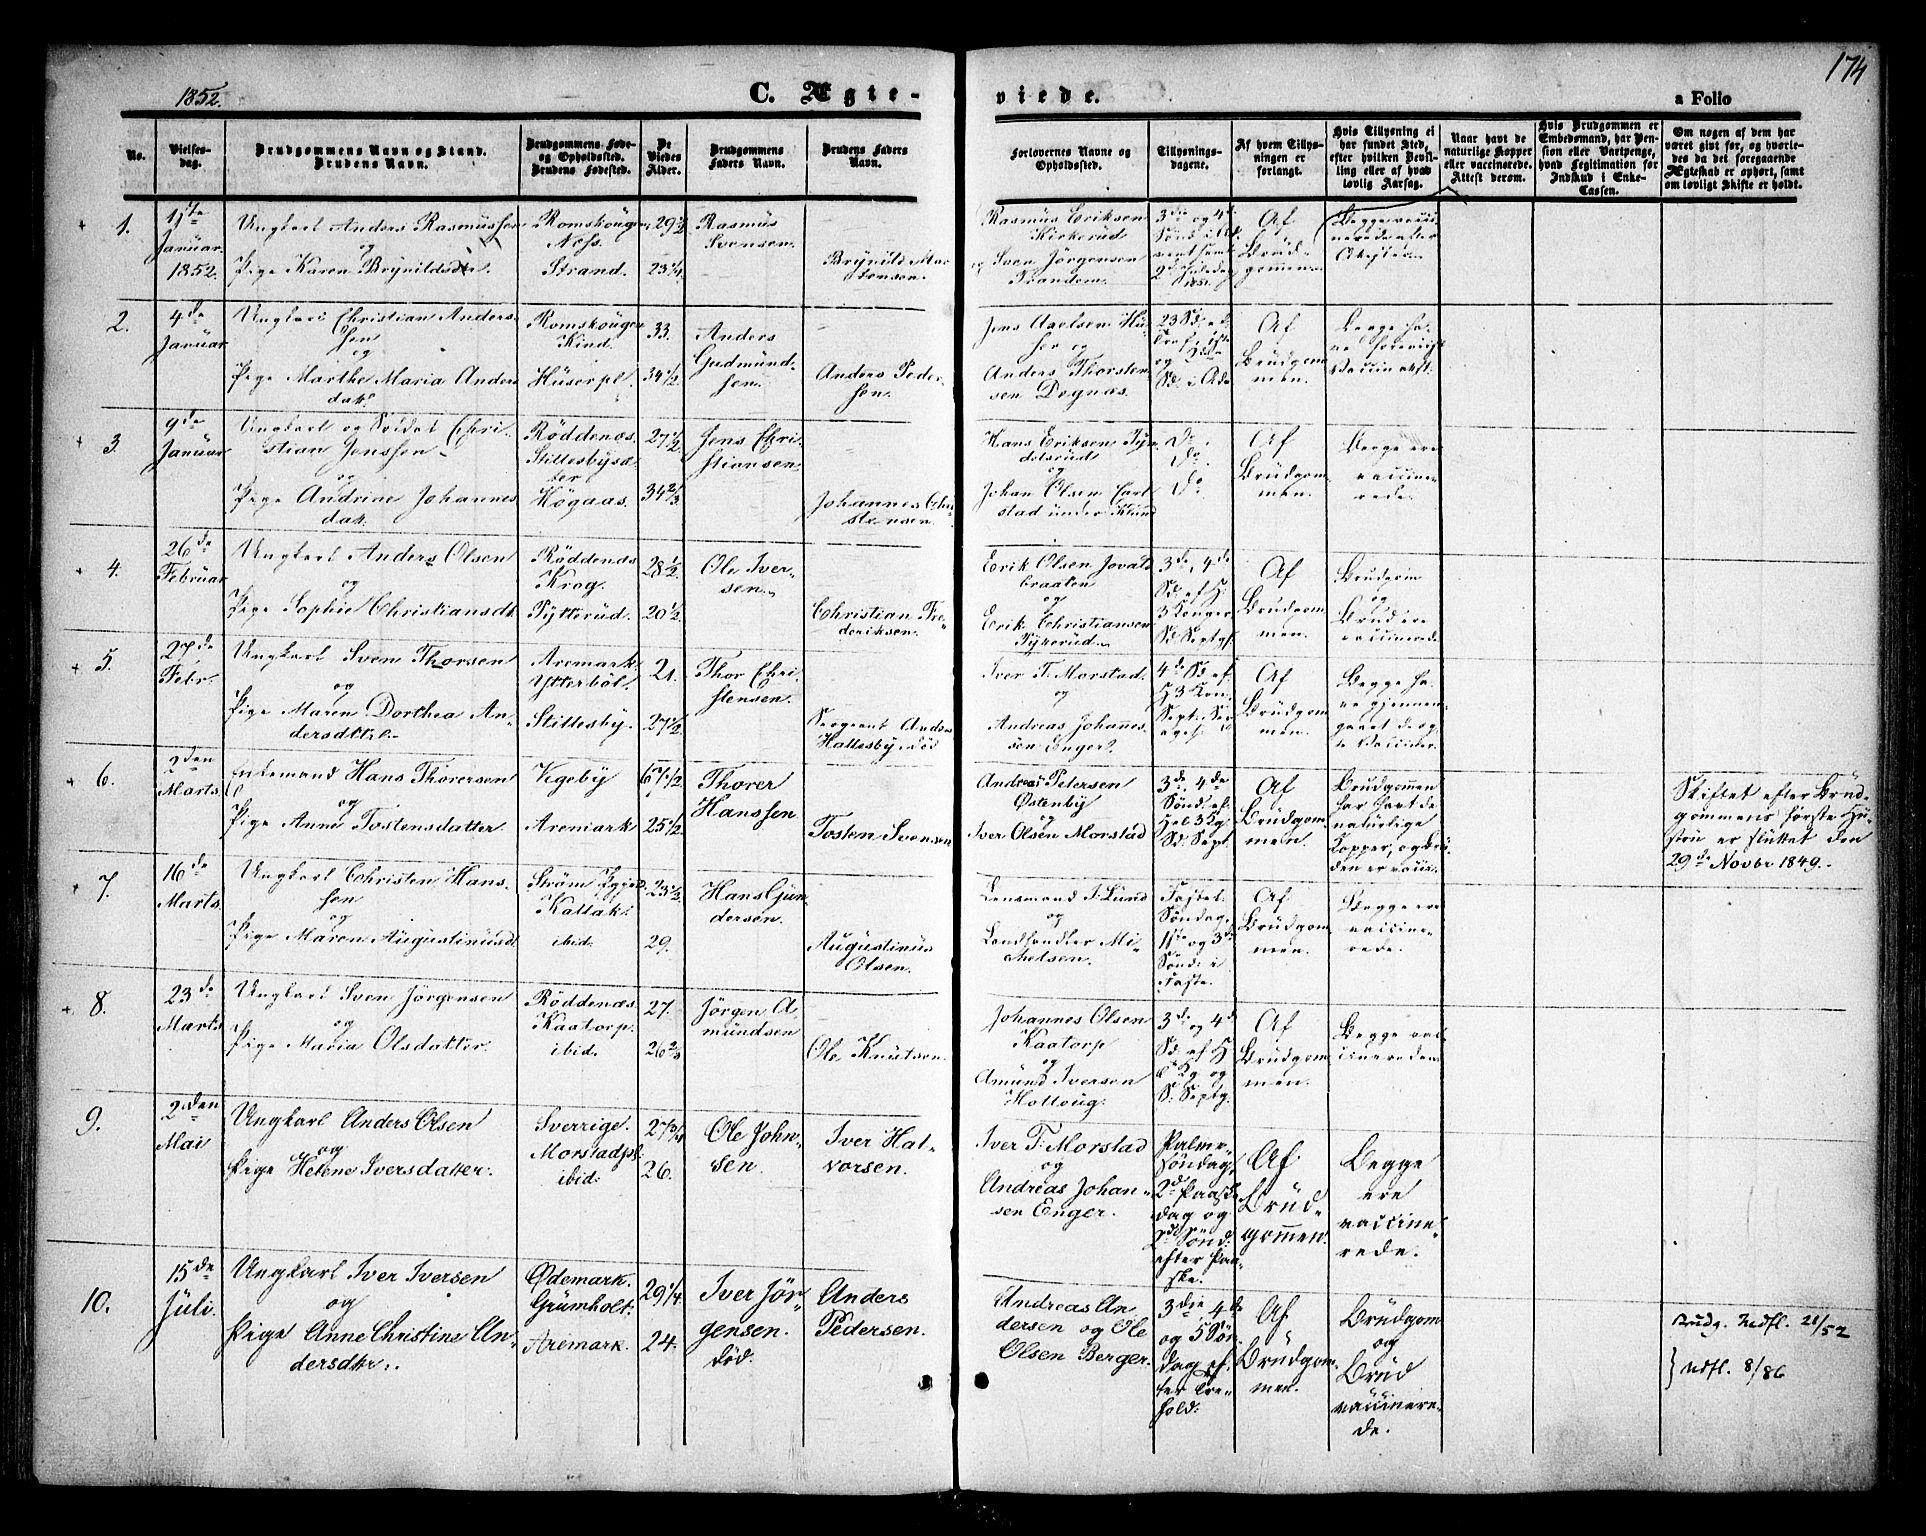 174
1852.
C. Ægte-
viede.
a Folio
No.
Vielses-
dag.
Brudgommens Navn og Stand.
Brudens Navn.
Brudgommens Føde-
og Opholdssted.
Brudens Fødested.
De
Viedes
Alder.
Brudgommens
Faders Navn.
Brudens Faders
Navn.
Forlovernes Navne og
Opholdssted.
Tillysnings-
dagene.
Af hvem Tillys-
ningen er
forlangt.
Hvis Tillysning ei
har fundet Sted,
efter hvilken Bevil-
ling eller af hvad
lovlig Aarsag.
Naar havt de
naturlige Kopper
eller vaccinerede.
Attest derom.
Hvis Brudgommen er
Embedsmand, har Pen-
sion eller Vartpenge,
hvad Legitimation for
Indskud i Enke-
Cassen.
Om nogen af dem har
været gift før, og hvorle-
des da det foregaaende
Ægteskab er ophørt, samt
om lovligt Skifte er holdt.
1.
Januar
1852.
Ungkarl Anders Rasmussen
og
Pige Karen Brynildsdtr
Romskougen
Næss.
Strand.
29 1/2
23 1/4
Rasmus
Svensen.
Brynild Mar-
tensen.
Rasmus Eriksen
Kirkerud
og Sven Jörgensen
Trandem.
3die og 4de
Sönd. i Ad-
vent samt
2d Juledag
1851.
Af
Brud-
gommen.
Begge vacci-
nerede efter
Attester.
2.
4de
Januar
Ungkarl Christian Anders-
sen
og
Pige Marthe Maria Anders
datt.
Romskougen
Kind.
Huser pl.
33.
34 1/2
Anders
Gudmund-
sen.
Anders Peder-
sen.
Jens Axelsen Hu-
ser og
Anders Thorsten-
sen Degnæs.
23 Sd. ef.
Tref., 1ste
og
Sd. i Adv
Af
Brudgom
men.
Begge ha-
ve foreviist
Vaccin. att.
3.
9de
Januar
Ungkarl og Soldat Chri-
stian Jenssen
og
Pige Andrine Johannes
datt.
Röddenæs.
Stillesbysæ-
ter
Högaas.
27 1/2
34 2/3
Jens Chri-
stiansen
Johannes Chri-
stensen.
Hans Eriksen Tyn-
delsrud
og
Johan Olsen Carl
stad under Klund
Do.
Do.
Do
Af
Brudgom
men.
Begge ere
vaccine-
rede.
4.
26de
Februar
Ungkarl Anders Olsen
og
Pige Sophie Christiansdt.
Röddenæs
Krog.
Pytterud.
28 1/2
20 1/2
Ole Iver-
sen.
Christian Fre-
deriksen.
Erik Olsen Jovald
braaten
og
Erik Christiansen
3de, 4de
Sd. ef. H.
3 Konger
Sd. Septg.
Af
Brudgom
men.
Brudgom
og
Brud ere
vaccinerede.
5.
27de
Febr.
Ungkarl Sven Thorsen
og
Pige Maren Dorthea An-
dersdttr.
Aremark
Ytterböl.
Stillesby.
21.
27 1/2
Thor Chri-
stensen.
Sergeant Anders
Hallesby, död
Iver T. Morstad.
og
Andreas Johannes
sen Enger.
4de Sd. ef.
H 3 Kon.
Sept.
Af
Brudgom
men.
Begge ha-
ve gjennem-
gaaet de
Vaccine.
6.
2den
Marts.
Enkemand Hans Thorersen
og
Pige Anne Tostensdatter.
Vigeby
Aremark
67 1/2
25 1/2
Thorer
Hanssen
Tosten Svensen
Andreas Petersen
Östenby
og
Iver Olsen Morstad
3de, 4de
Sönd. ef.
Hel. 3 Kg.
Sd. Sept.
Af
Brudgom
men.
Brudgommen
har havt de
naturlige
Kopper, og Bru-
den er vacc.
Skiftet efter Brud-
gommens förste Hu-
stru er sluttet den
29de Novbr 1849.
7.
16de
Marts.
Ungkarl Christen Hans-
sen
og
Pige Maren Augustinusd.
Ström
Kallak:
ibid:
23 1/3
29.
Hans Gun
dersen.
Augustinus
Olsen.
Lensmand J. Lund
og
Landhandler Mi-
chelsen.
Fastel.
Söndag,
1ste og 3de
Sönd. i
Faste.
Af
Brudgom
men.
Begge ere
vaccine-
rede.
8.
23de
Marts
Ungkarl Sven Jörgensen
og
Pige Maria Olsdatter.
Röddenæs
Kaatorp.
ibid.
27.
26 2/3
Jörgen A
mundsen
Ole Knutsen.
Johannes Olsen
Kaatorp
og
Amund Iversen
Holtoug.
3de og 4de
Sd. ef. H
3 Kg. og
S. Septg.
Af
Brudgom
men.
Begge vac-
cinerede.
9.
2den
Mai
Ungkarl Anders Olsen
og
Pige Helene Iversdatter.
Sverrige.
Morstadpl.
ibid:
27 3/4
26.
Ole John-
sen.
Iver Hal-
vorsen.
Iver T. Morstad
og
Andreas Johan-
sen Enger.
Palme-
söndag,
2d. Paaske-
dag og
2d. Sönd.
efter Paa-
ske.
Af
Brud-
gommen.
Begge
ere
vaccine-
rede.
10.
15de
Juli.
Ungkarl Iver Iversen
og
Pige Anne Christine An-
dersdtr.
Ødemark.
Grümholt:
Aremark.
29 1/4.
24.
Iver Jör-
gensen.
död.
Anders
Pedersen.
Andreas An
dersen og Ole
Olsen Berger.
3die 4de
og 5 Sön-
dag ef-
ter Tre-
fold:
Af
Brudgom
men.
Brudgom
og
Brud
vaccinere-
de.
Brudg. Udfl. 21/52
} Udfl. 8/86